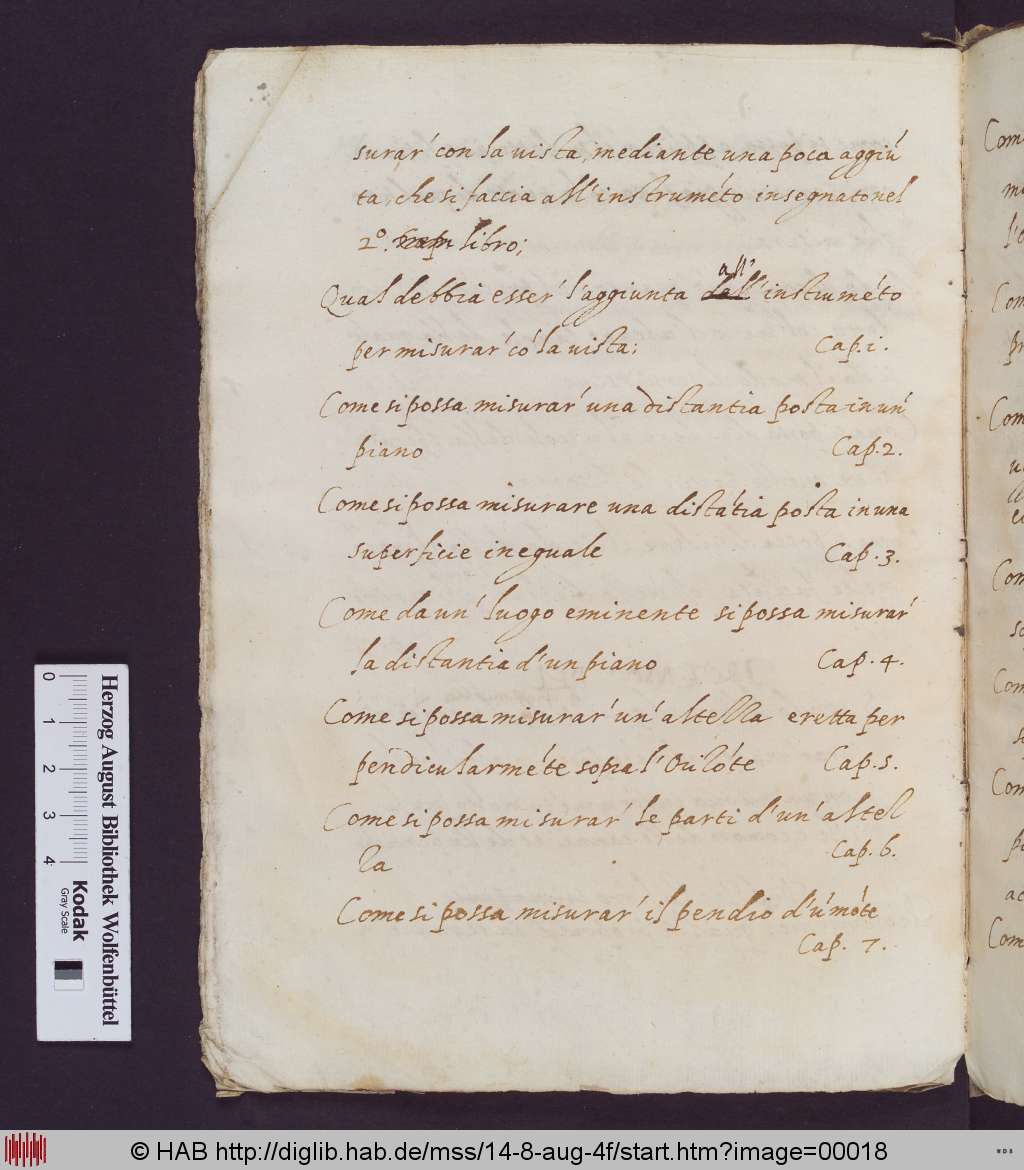 surar' con la vista, mediante una poca aggiú
ta, che si faccia all' instruméto insegnato nel
2º. libro;
Qual debbia esser' l'aggiunta dell' all' instruméto
per misurar' có la vista; Cap. 1.
Come si possa misurar' una distantia posta in un'
piano Cap. 2.
Come si possa misurare una distátia posta in una
superficie ineguale Cap. 3.
Come da un' luogo eminente si possa misurar'
la distantia d'un piano Cap. 4.
Come si possa misurar' un' altezza eretta per
péndicularméte sopra l'Orizóte Cap. 5.
Come si possa misurar' le parti d'un' altez
za Cap. 6.
Come si possa misurar' il pendio d'ú móte
Cap. 7.
Com
Com
pr
Com
Com
Com
Com
Com
0 1 2 3 4
Herzog August Bibliothek Wolfenbüttel
Kodak
Gray Scale
© HAB http://diglib.hab.de/mss/14-8-aug-4f/start.htm?image=00018